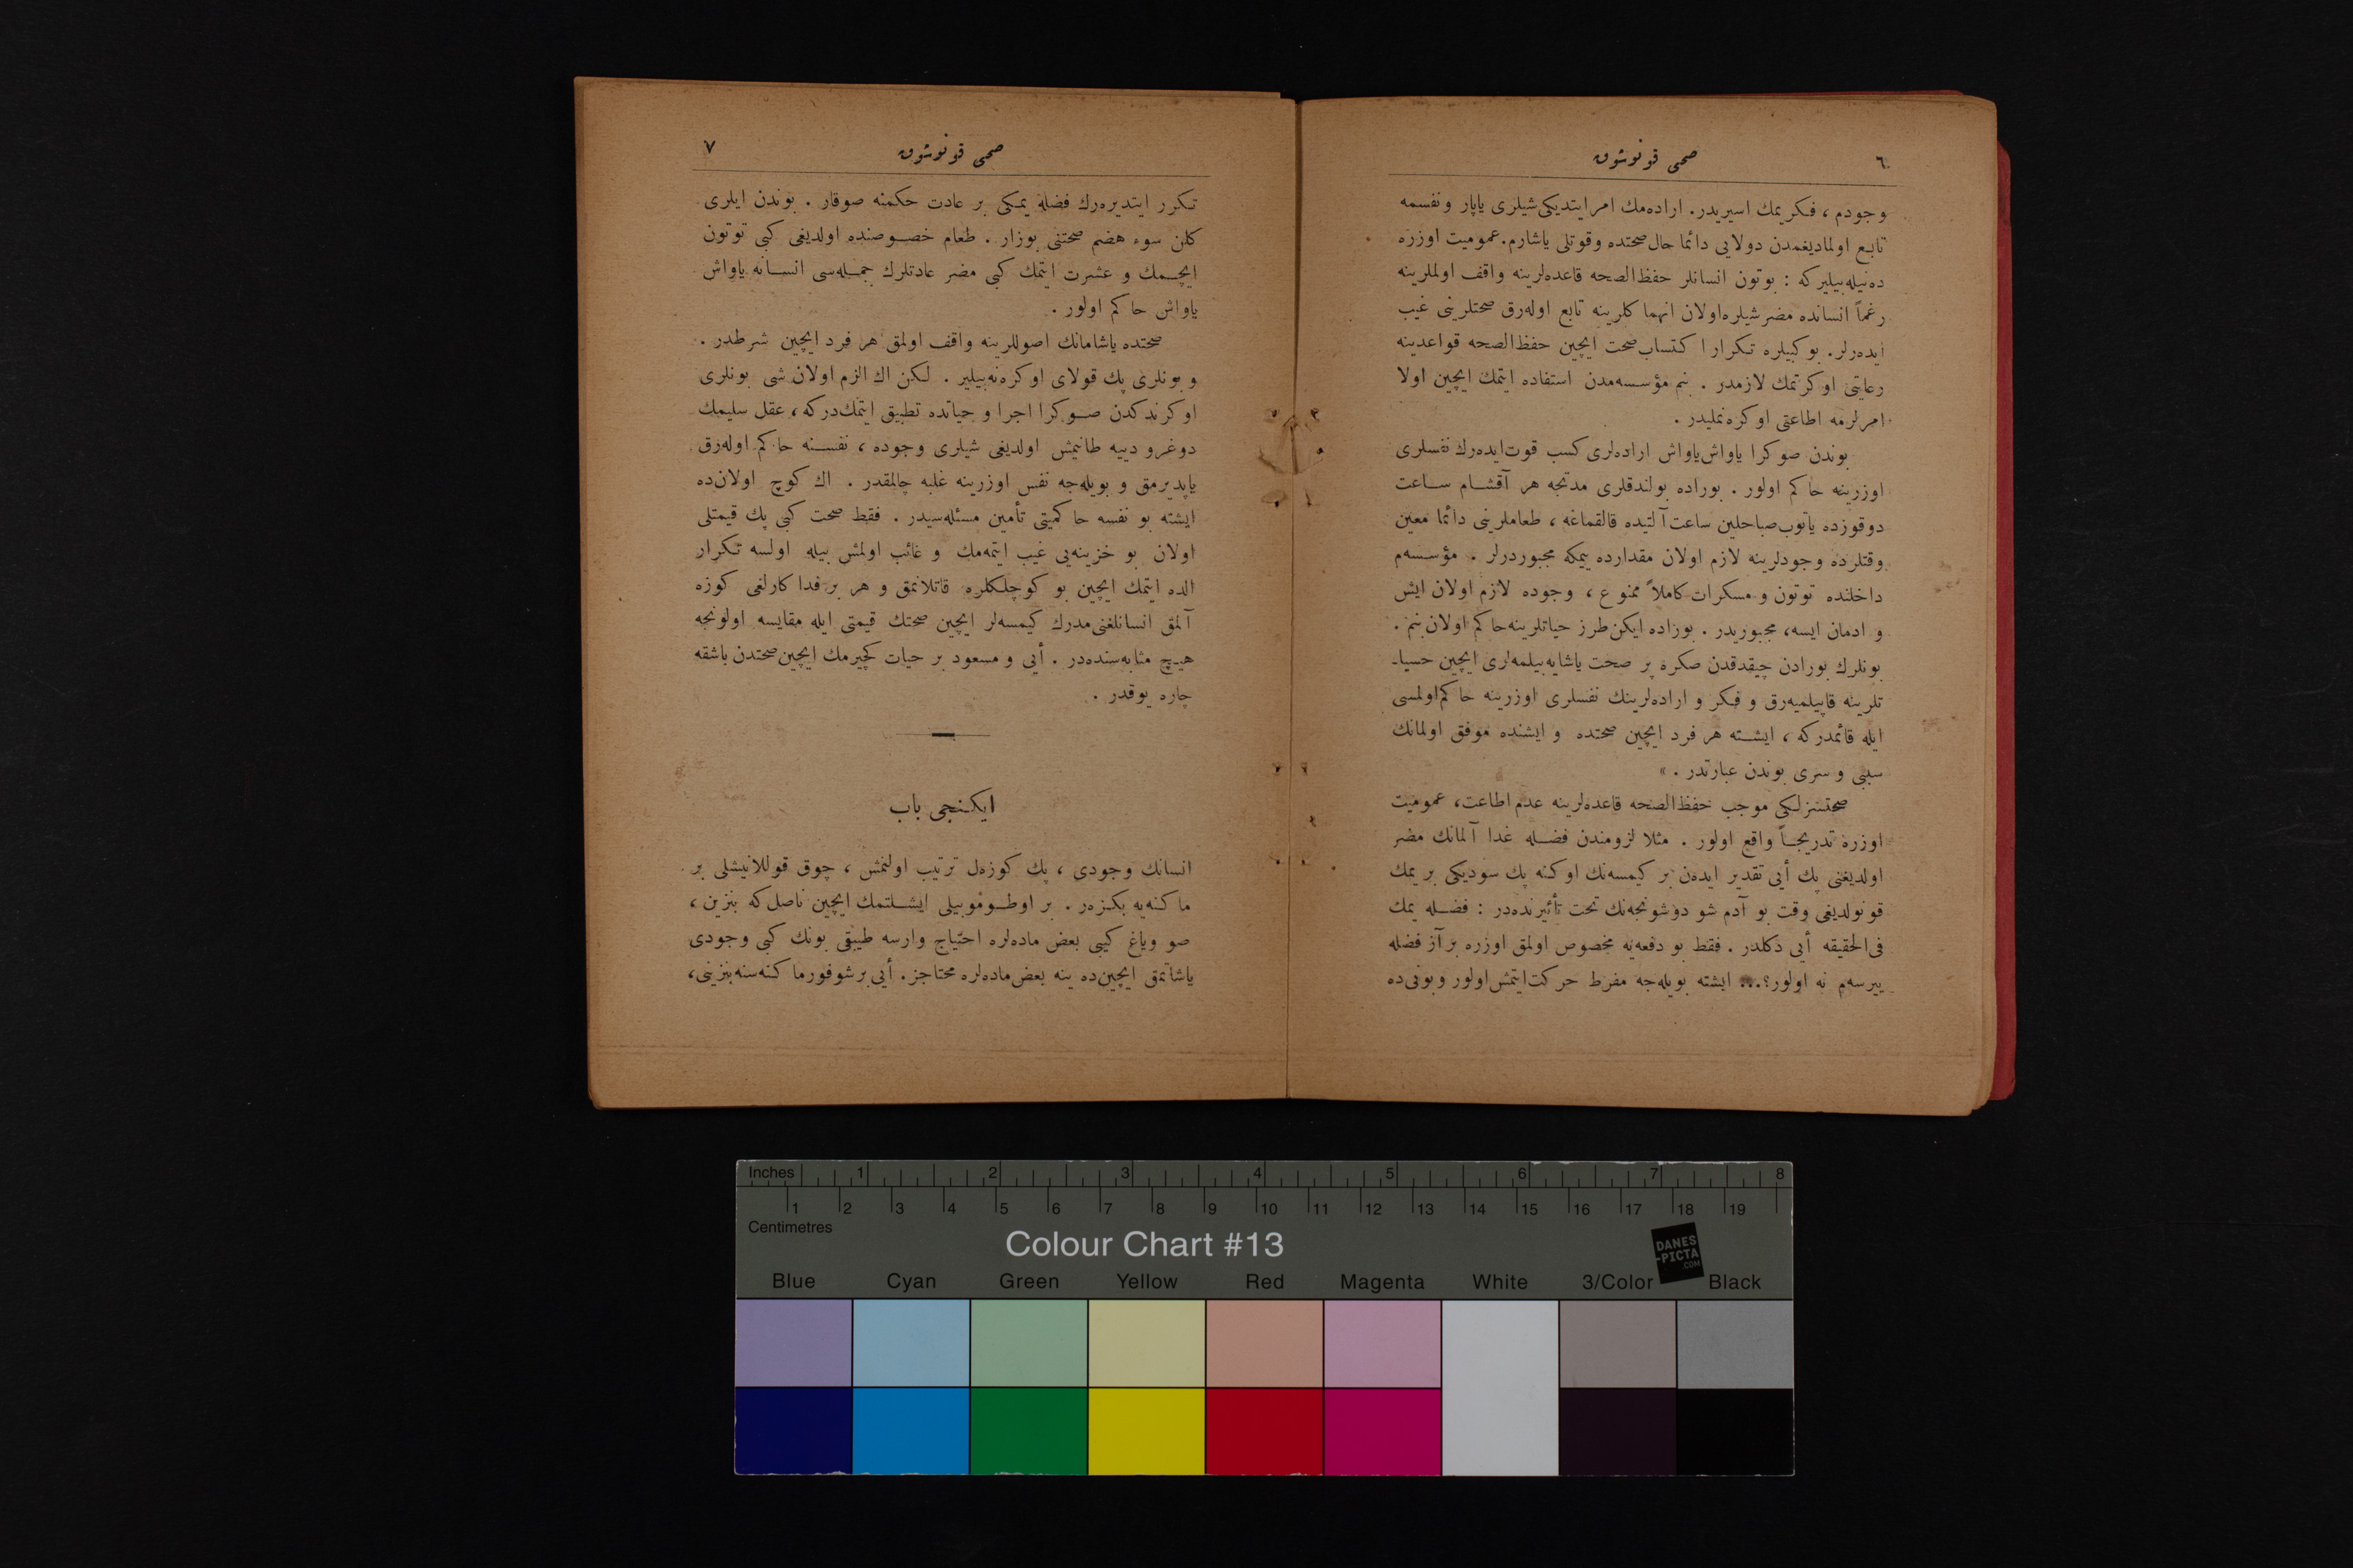 ٦
صحی قونوشوق
وجودم ، فكریمك اسیریدر. اراده‌مك امر ایتدیكی شیلری یاپار ونفسمه
تابع اولمادیغمدن دولایی دائما حال صحتده وقوتلی یاشارم. عمومیت اوزره
ده‌نیله‌بیلیركه : بوتون انسانلر حفظ‌الصحه قاعده‌لرینه واقف اولملرینه
رغماً انسانده مضر شیلره اولان انهماكلرینه تابع اوله‌رق صحتلرینی غیب
ایده‌رلر. بوكبیلره تكرار اكتساب صحت ایچین حفظ‌الصحه قواعدینه
رعایتی اوكرتمك لازمدر . بنم مؤسسه‌مدن استفاده ایتمك ایچین اولا
امرلرمه اطاعتی اوكره‌نملیدر .
بوندن صوكرا یاواش یاواش اراده‌لری كسب قوت ایده‌رك نفسلری
اوزرینه حاكم اولور . بوراده بولندقلری مدتجه هر آقشام ساعت
دوقوزده یاتوب صباحلین ساعت آلتیده قالقماغه ، طعاملرینی دائما معین
وقتلرده وجودلرینه لازم اولان مقدارده ییمكه مجبوردرلر . مؤسسه‌م
داخلنده توتون و مسكرات كاملاً ممنوع ، وجوده لازم اولان ایش
و ادمان ایسه، مجبوریدر . بوراده ایكن طرز حیاتلرینه حاكم اولان بنم .
بونلرك بورادن چیقدقدن صكره بر صحت یاشایه‌بیلمه‌لری ایچین حسیا-
تلرینه قاپیلمیه‌رق و فكر و اراده‌لرینك نفسلری اوزرینه حاكم اولمسی
ایله قائمدركه ، ایشته هر فرد ایچین صحتده و ایشنده موفق اولمانك
سببی و سری بوندن عبارتدر . »
صحتسزلكی موجب حفظ‌الصحه قاعده‌لرینه عدم اطاعت، عمومیت
اوزره تدریجاً واقع اولور . مثلا لزومندن فضله غدا آلمانك مضر
اولدیغنی پك أیی تقدیر ایده‌ن بر كیمسه‌نك اوكنه پك سودیكی بر یمك
قونولدیغی وقت بو آدم شو دوشونجه‌نك تحت تأثیرنده‌در : فضله یمك
فی‌الحقیقه أیی دكلدر . فقط بو دفعه‌یه مخصوص اولمق اوزره بر آز فضله
ییرسه‌م نه اولور؟... ایشته بویله‌جه مفرط حركت ایتمش اولور وبونی ده
٧
صحی قونوشوق
تكرر ایتدیره‌رك فضله یمكی بر عادت حكمنه صوقار . بوندن ایلری
كلن سوء هضم صحتنی بوزار . طعام خصوصنده اولدیغی كبی توتون
ایچمك و عشرت ایتمك كبی مضر عادتلرك جمله‌سی انسانه یاواش
یاواش حاكم اولور .
صحتده یاشامانك اصوللرینه واقف اولمق هر فرد ایچین شرطدر .
و بونلری پك قولای اوكره‌نه‌بیلیر . لكن اك الزم اولان شی بونلری
اوكرندكدن صوكرا اجرا و حیاتده تطبیق ایتمك‌دركه ، عقل سلیمك
دوغرو دییه طانیمش اولدیغی شیلری وجوده ، نفسنه حاكم اوله‌رق
یاپدیرمق و بویله‌جه نفس اوزرینه غلبه چالمقدر . اك كوچ اولان‌ده
ایشته بو نفسه حاكمیتی تأمین مسئله‌سیدر . فقط صحت كبی پك قیمتلی
اولان بو خزینه‌یی غیب ایتمه‌مك و غائب اولمش بیله اولسه تكرار
الده ایتمك ایچین بو كوچلكلره قاتلانمق و هر بر فداكارلغی كوزه
آلمق انسانلغنی مدرك كیمسه‌لر ایچین صحتك قیمتی ایله مقایسه اولونجه
هیچ مثابه‌سنده‌در . أیی و مسعود بر حیات كچیرمك ایچین صحتدن باشقه
چاره یوقدر .
ایكنجی باب
انسانك وجودی ، پك كوزه‌ل ترتیب اولنمش ، چوق قوللانیشلی بر
ماكنه‌یه بكزه‌ر . بر اوطوموبیلی ایشلتمك ایچین ناصل كه بنزین ،
صو ویاغ كیبی بعض ماده‌لره احتیاج وارسه طبیقی بونك كبی وجودی
یاشاتمق ایچین‌ده ینه بعض ماده‌لره محتاجز. أیی بر شوفور ماكنه‌سنه بنزینی،
Inches 1 2 3 4 5 6 7 8
1 2 3 4 5 6 7 8 9 10 11 12 13 14 15 16 17 18 19
Centimetres
Colour Chart #13
DANES
-PICTA
.COM
Blue Cyan Green Yellow Red Magenta White 3/Color Black